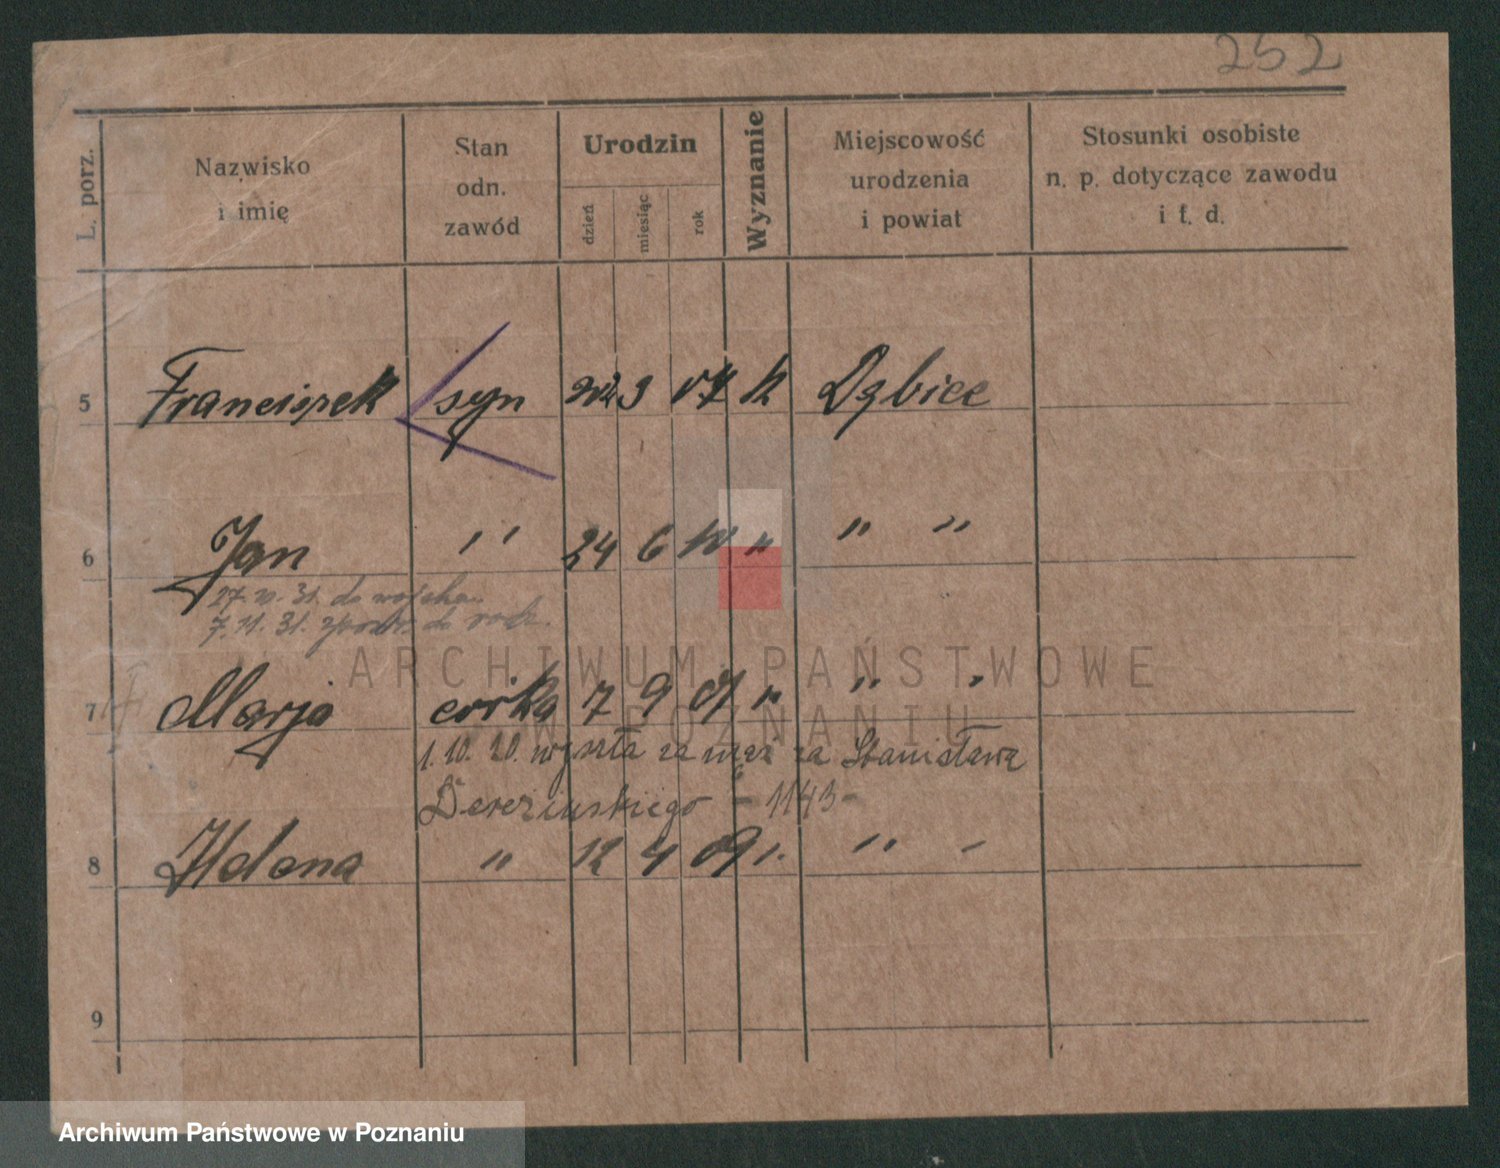 252
L. porz.
Nazwisko
i imię
Stan
odn.
zawód
Urodzin
dzień
miesiąc
rok
Wyznanie
Miejscowość
urodzenia
i powiat
Stosunki osobiste
n. p. dotyczące zawodu
i t. d.
5 Franciszek syn 3 04 k
6 Jan " 24 6 " " "
31. do wojska
7. 11. 31. do
7 Marja córka 7 9 07 " " "
1. 10. 20. wyszła za mąż za Stanisława
- 1143 -
8 Helena " 12 4 09 " " "
9
ARCHIWUM PAŃSTWOWE
W POZNANIU
Archiwum Państwowe w Poznaniu